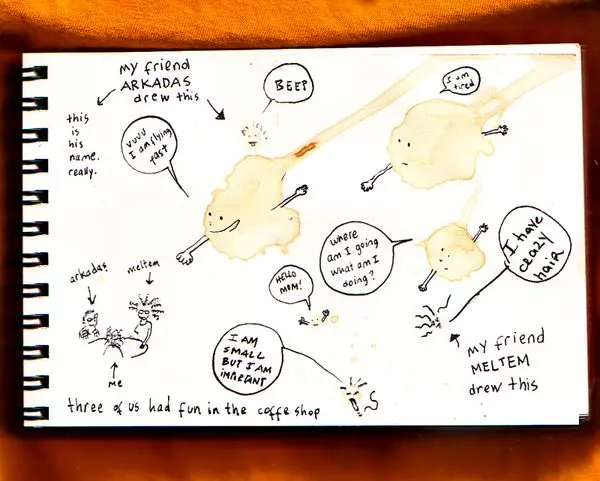 my friend
ARKADAS
drew this
this
is
his
name.
really.
BEEP
I am
tired
vuvu
I am flying
fast
where
am I going
what am I
doing?
I have
crazy
hair
HELLO
MOM!
arkadas
meltem
me
I AM
SMALL
BUT I AM
IMPORANT
my friend
MELTEM
drew this
three of us had fun in the coffe shop